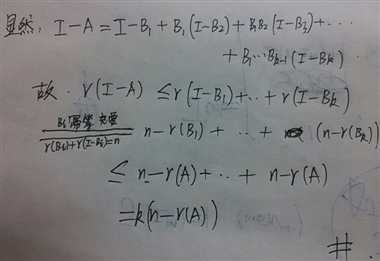 显然, I-A=I-B₁+B₁(I-B₂)+B₁B₂(I-B₃)+⋯
+B₁⋯Bₖ₋₁(I-Bₖ).
故. r(I-A) ≤r(I-B₁)+⋯+r(I-Bₖ)
r(Bᵢ)+r(I-Bᵢ)=n n-r(B₁)+⋯+(n-r(Bₖ))
≤ n-r(A)+⋯+ n-r(A)
=k(n-r(A))
#.